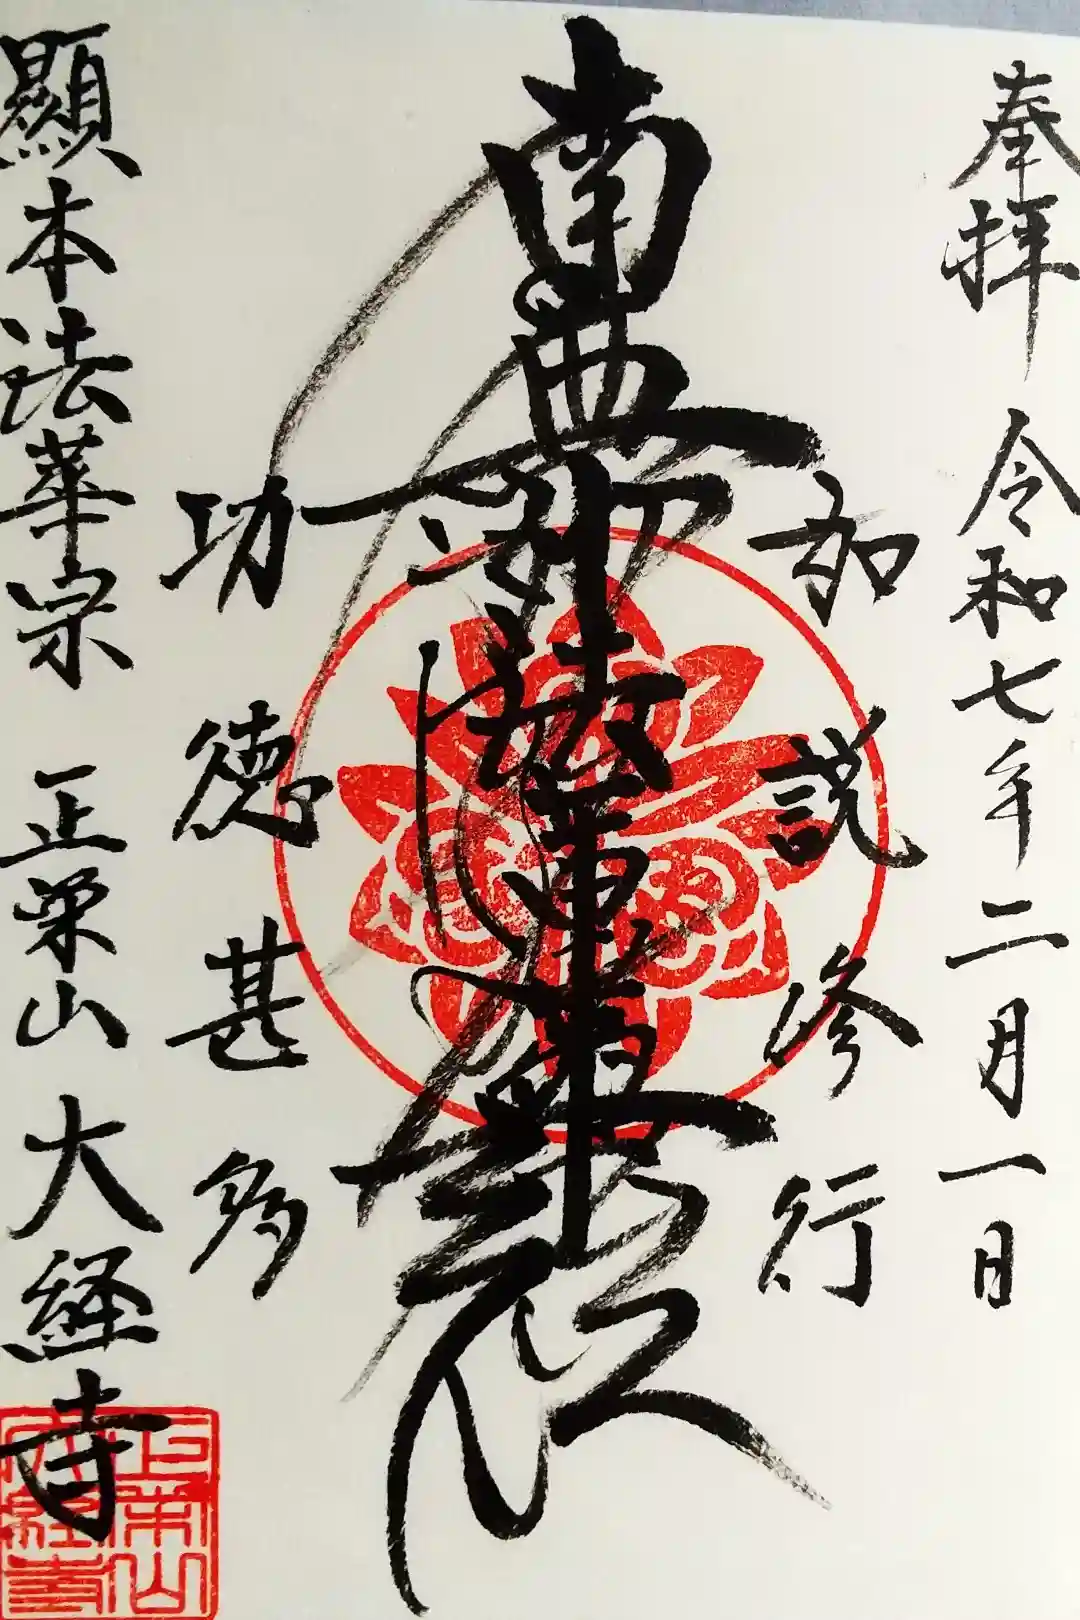 奉拝 令和七年二月一日
如説修行
南無妙法蓮華経
功徳甚多
顯本法華宗 正栄山 大経寺
正栄山
大経寺